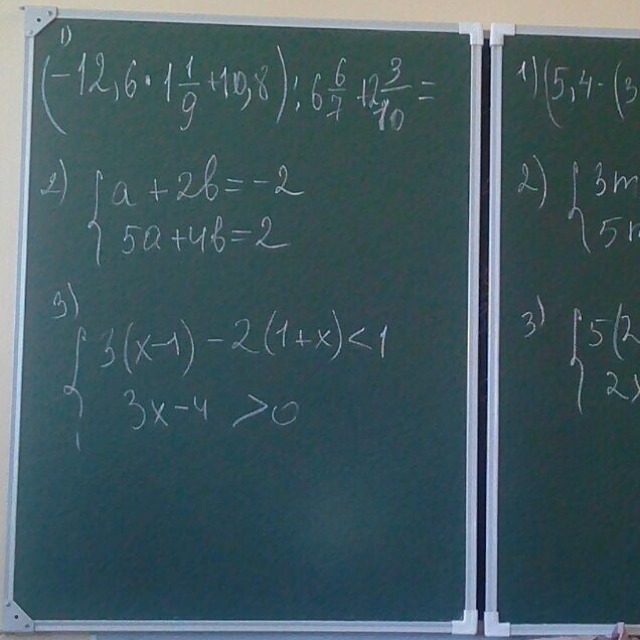 1)
(-12,6 · 1 1/9 + 10,8) : 6 6/7 + 2 3/10 =
2) { a + 2b = -2
5a + 4b = 2
3)
{ 3(x-1) - 2(1+x) < 1
3x - 4 > 0
1) (5,4 - (3
2) { 3m
5
3) { 5(2
2x